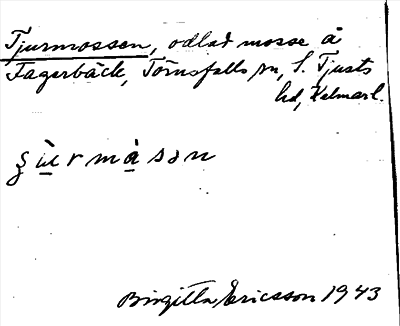 Tjurmossen, odlad mosse å
Fagerbäck, Törnsfalls sn, S. Tjusts
hd, Kalmar l.
Birgitta Ericsson 1943